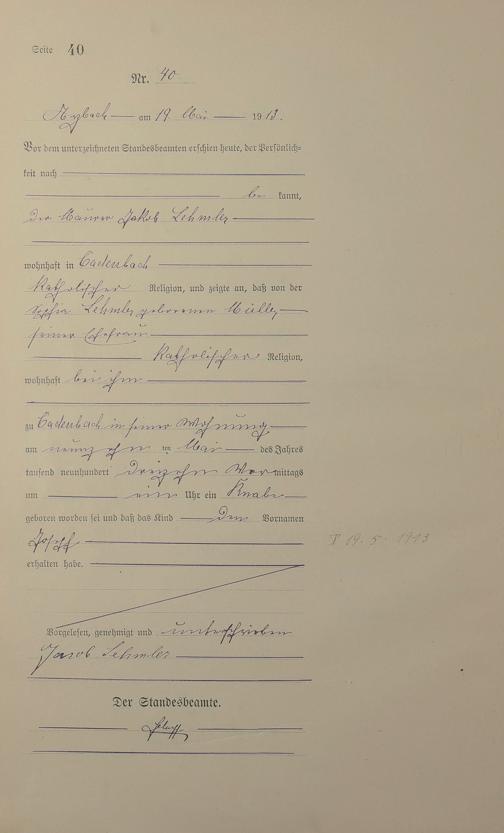 Seite 40
Nr. 40
Arzbach am 19 Mai 1913.
Vor dem unterzeichneten Standesbeamten erschien heute, der Persönlich=
keit nach
be kannt,
der Maurer Jakob Lehmler
wohnhaft in Cadenbach
katholischer Religion, und zeigte an, daß von der
Sophia Lehmler geborenen Müller
seiner Ehefrau
katholischer Religion,
wohnhaft bei ihm
zu Cadenbach in seiner Wohnung
am neunzehn ten Mai des Jahres
tausend neunhundert dreizehn Vor mittags
um ein Uhr ein Knabe
geboren worden sei und daß das Kind den Vornamen
Josef
erhalten habe.
Vorgelesen, genehmigt und unterschrieben
Jacob Lehmler
Der Standesbeamte.
19. 5. 1913